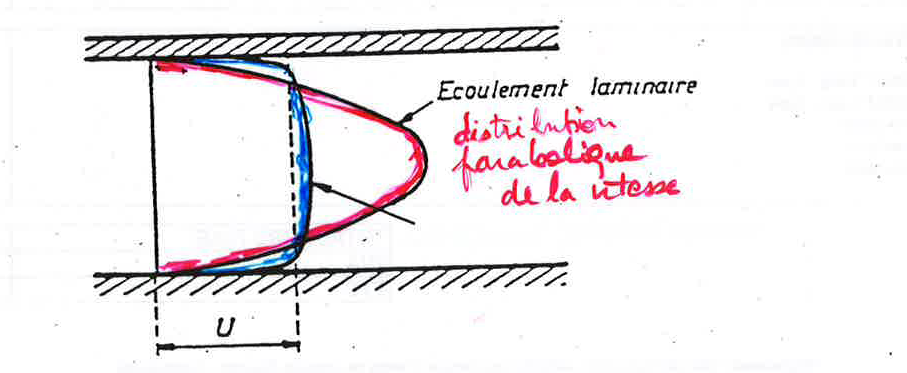 Ecoulement laminaire
distribution
parabolique
de la vitesse
U